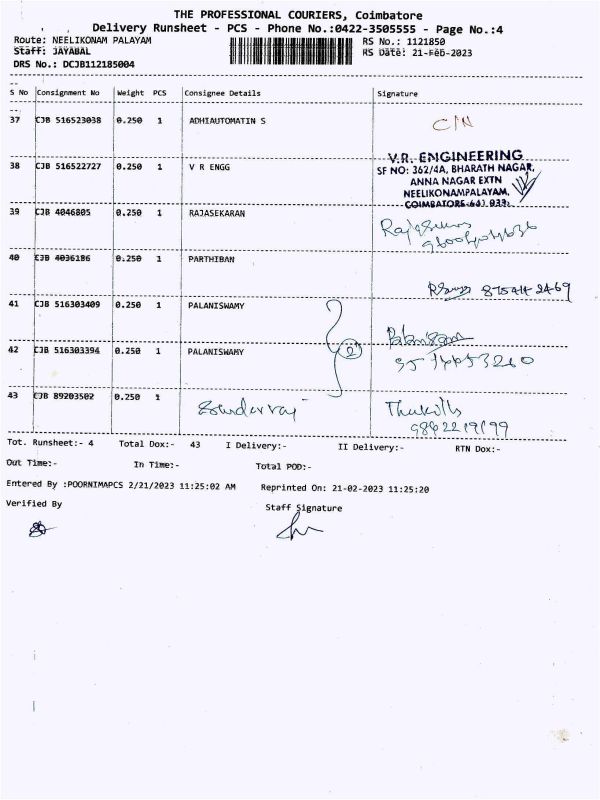 THE PROFESSIONAL COURIERS, Coimbatore
Delivery Runsheet - PCS - Phone No.:0422-3505555 - Page No.:4
Route: NEELIKONAM PALAYAM RS No.: 1121850
Staff: JAYABAL RS Date: 21-Feb-2023
DRS No.: DCJB112185004
S No Consignment No Weight PCS Consignee Details Signature
37 CJB 516523038 0.250 1 ADHIAUTOMATIN S C/N
38 CJB 516522727 0.250 1 V R ENGG
V.R. ENGINEERING
SF NO: 362/4A, BHARATH NAGAR,
ANNA NAGAR EXTN
NEELIKONAMPALAYAM,
COIMBATORE-641 033.
39 CJB 4046805 0.250 1 RAJASEKARAN
40 CJB 4036186 0.250 1 PARTHIBAN
41 CJB 516303409 0.250 1 PALANISWAMY
42 CJB 516303394 0.250 1 PALANISWAMY 2
43 CJB 89203502 0.250 1
9862219199
Tot. Runsheet:- 4 Total Dox:- 43 I Delivery:- II Delivery:- RTN Dox:-
Out Time:- In Time:- Total POD:-
Entered By :POORNIMAPCS 2/21/2023 11:25:02 AM Reprinted On: 21-02-2023 11:25:20
Verified By Staff Signature